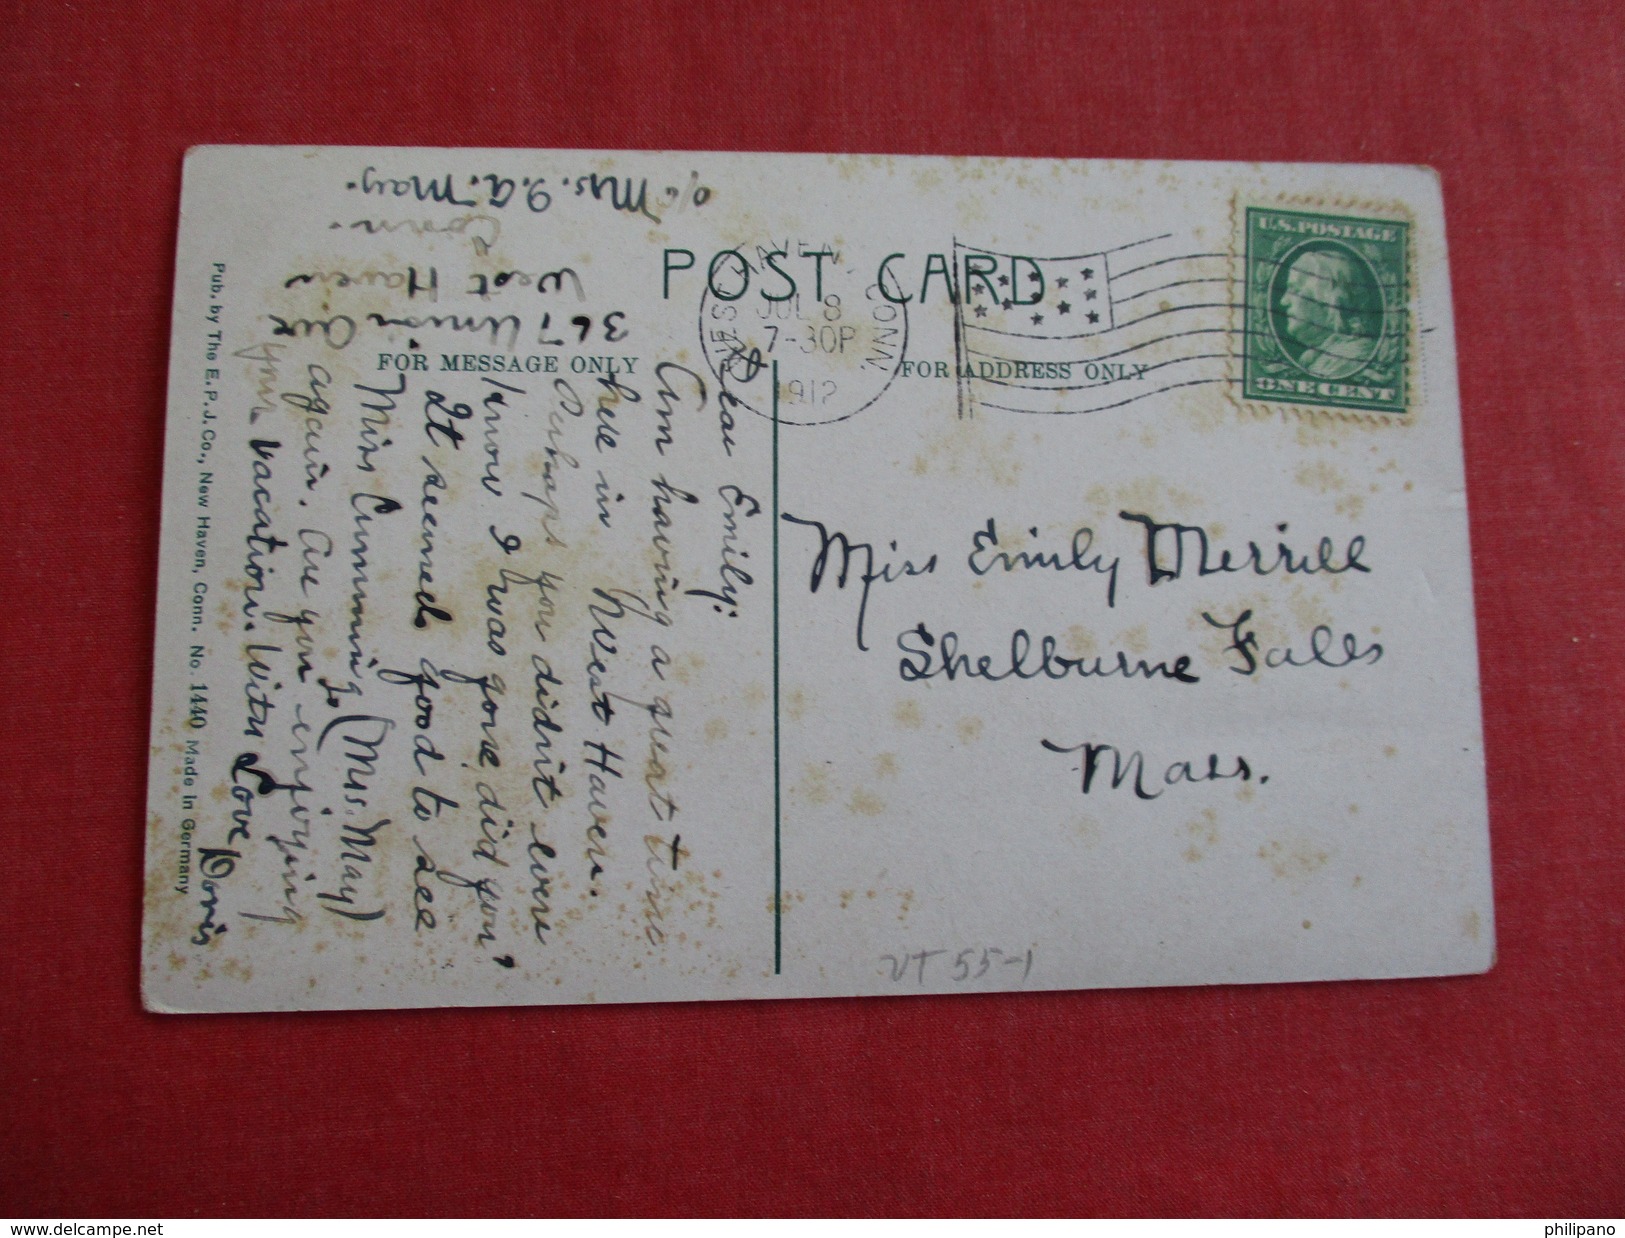 POST CARD
FOR MESSAGE ONLY
FOR ADDRESS ONLY
U.S. POSTAGE
ONE CENT
HAVEN
CONN.
JUL 8
7-30P
1912
Dear Emily:
Am having a great time
here in West Haven.
Perhaps you didn't even
know I was gone, did you?
It seemed good to see
Miss Cumming's (Mrs. May)
again. Are you enjoying
your vacation. With Love
Doris
367 Union Ave
West Haven
Conn.
c/o Mrs. I. A. May.
Miss Emily Merrill
Shelburne Falls
Mass.
Pub. by The E. P. J. Co., New Haven, Conn. No. 1440 Made in Germany
VT 55-1
philipano
www.delcampe.net